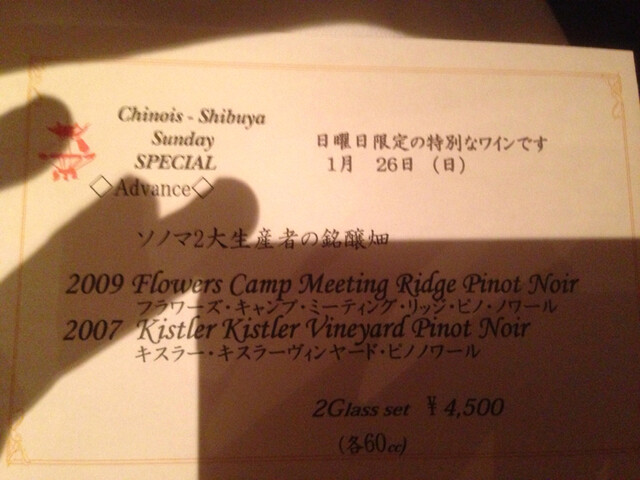 Chinois - Shibuya
Sunday
SPECIAL
◇Advance◇
日曜日限定の特別なワインです
1月 26日 (日)
ソノマ2大生産者の銘醸畑
2009 Flowers Camp Meeting Ridge Pinot Noir
フラワーズ・キャンプ・ミーティング・リッジ・ピノ・ノワール
2007 Kistler Kistler Vineyard Pinot Noir
キスラー・キスラーヴィンヤード・ピノノワール
2Glass set ¥4,500
(各60cc)